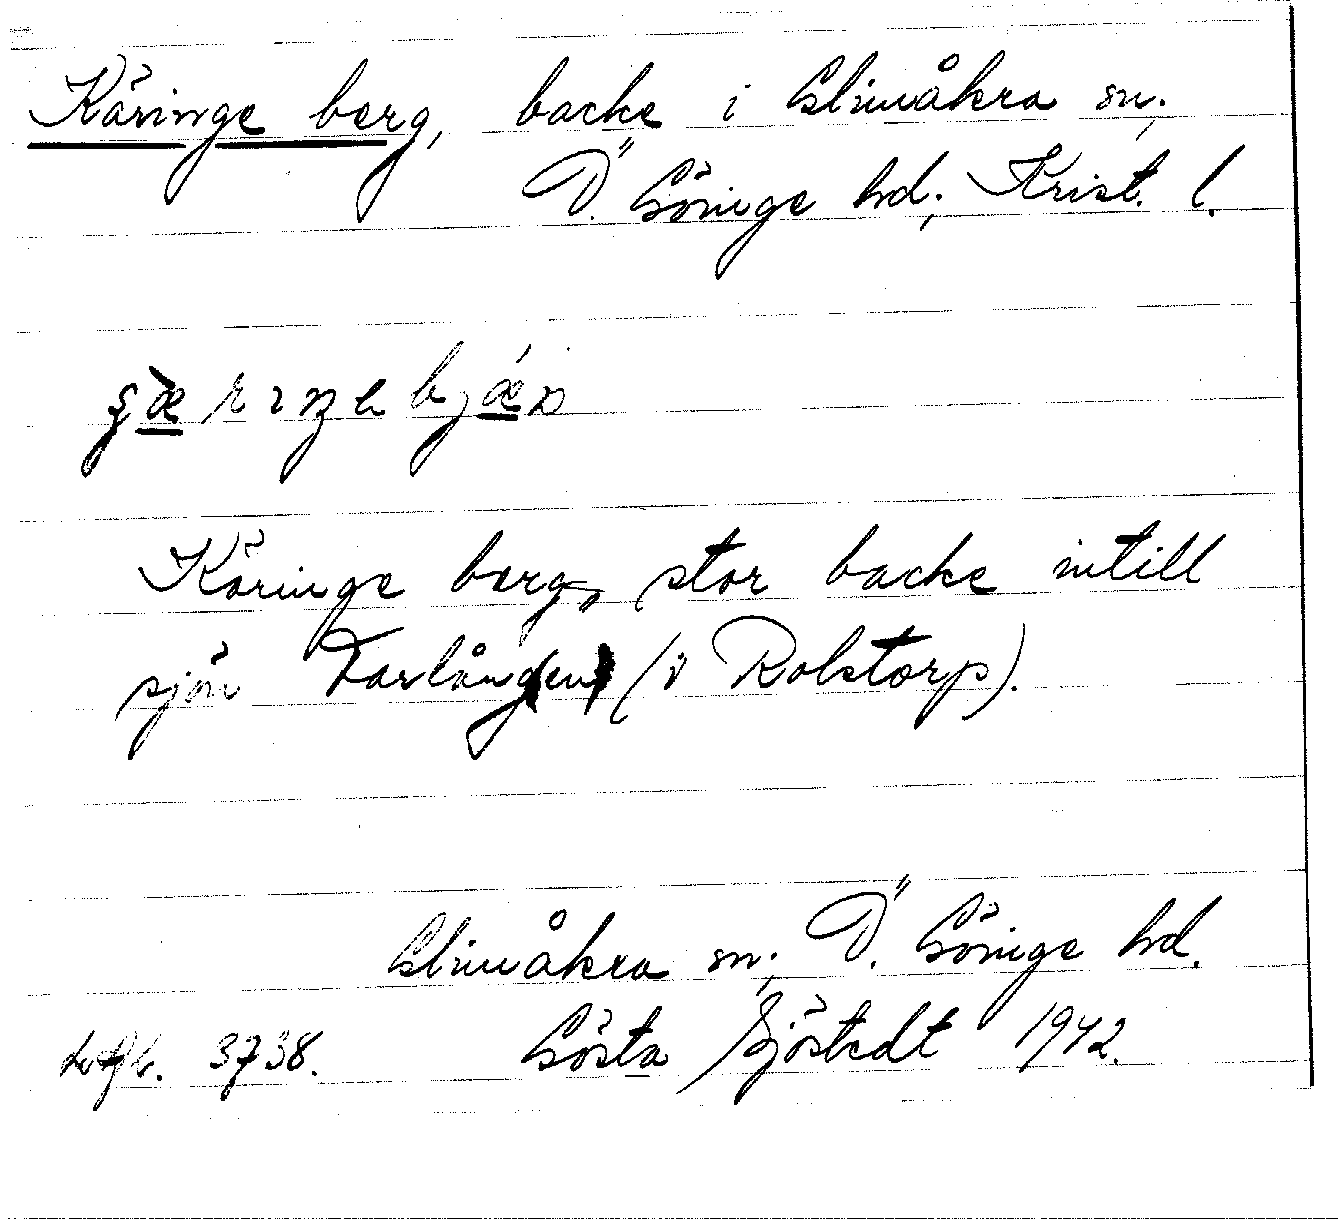 Käringe berg, backe i Glimåkra sn;
Ö. Göinge hd; Krist. l.
Käringe berg, stor backe intill
sjön Tarlången (v Rolstorp).
Glimåkra sn; Ö. Göinge hd.
3738. Gösta Sjöstedt 1942.